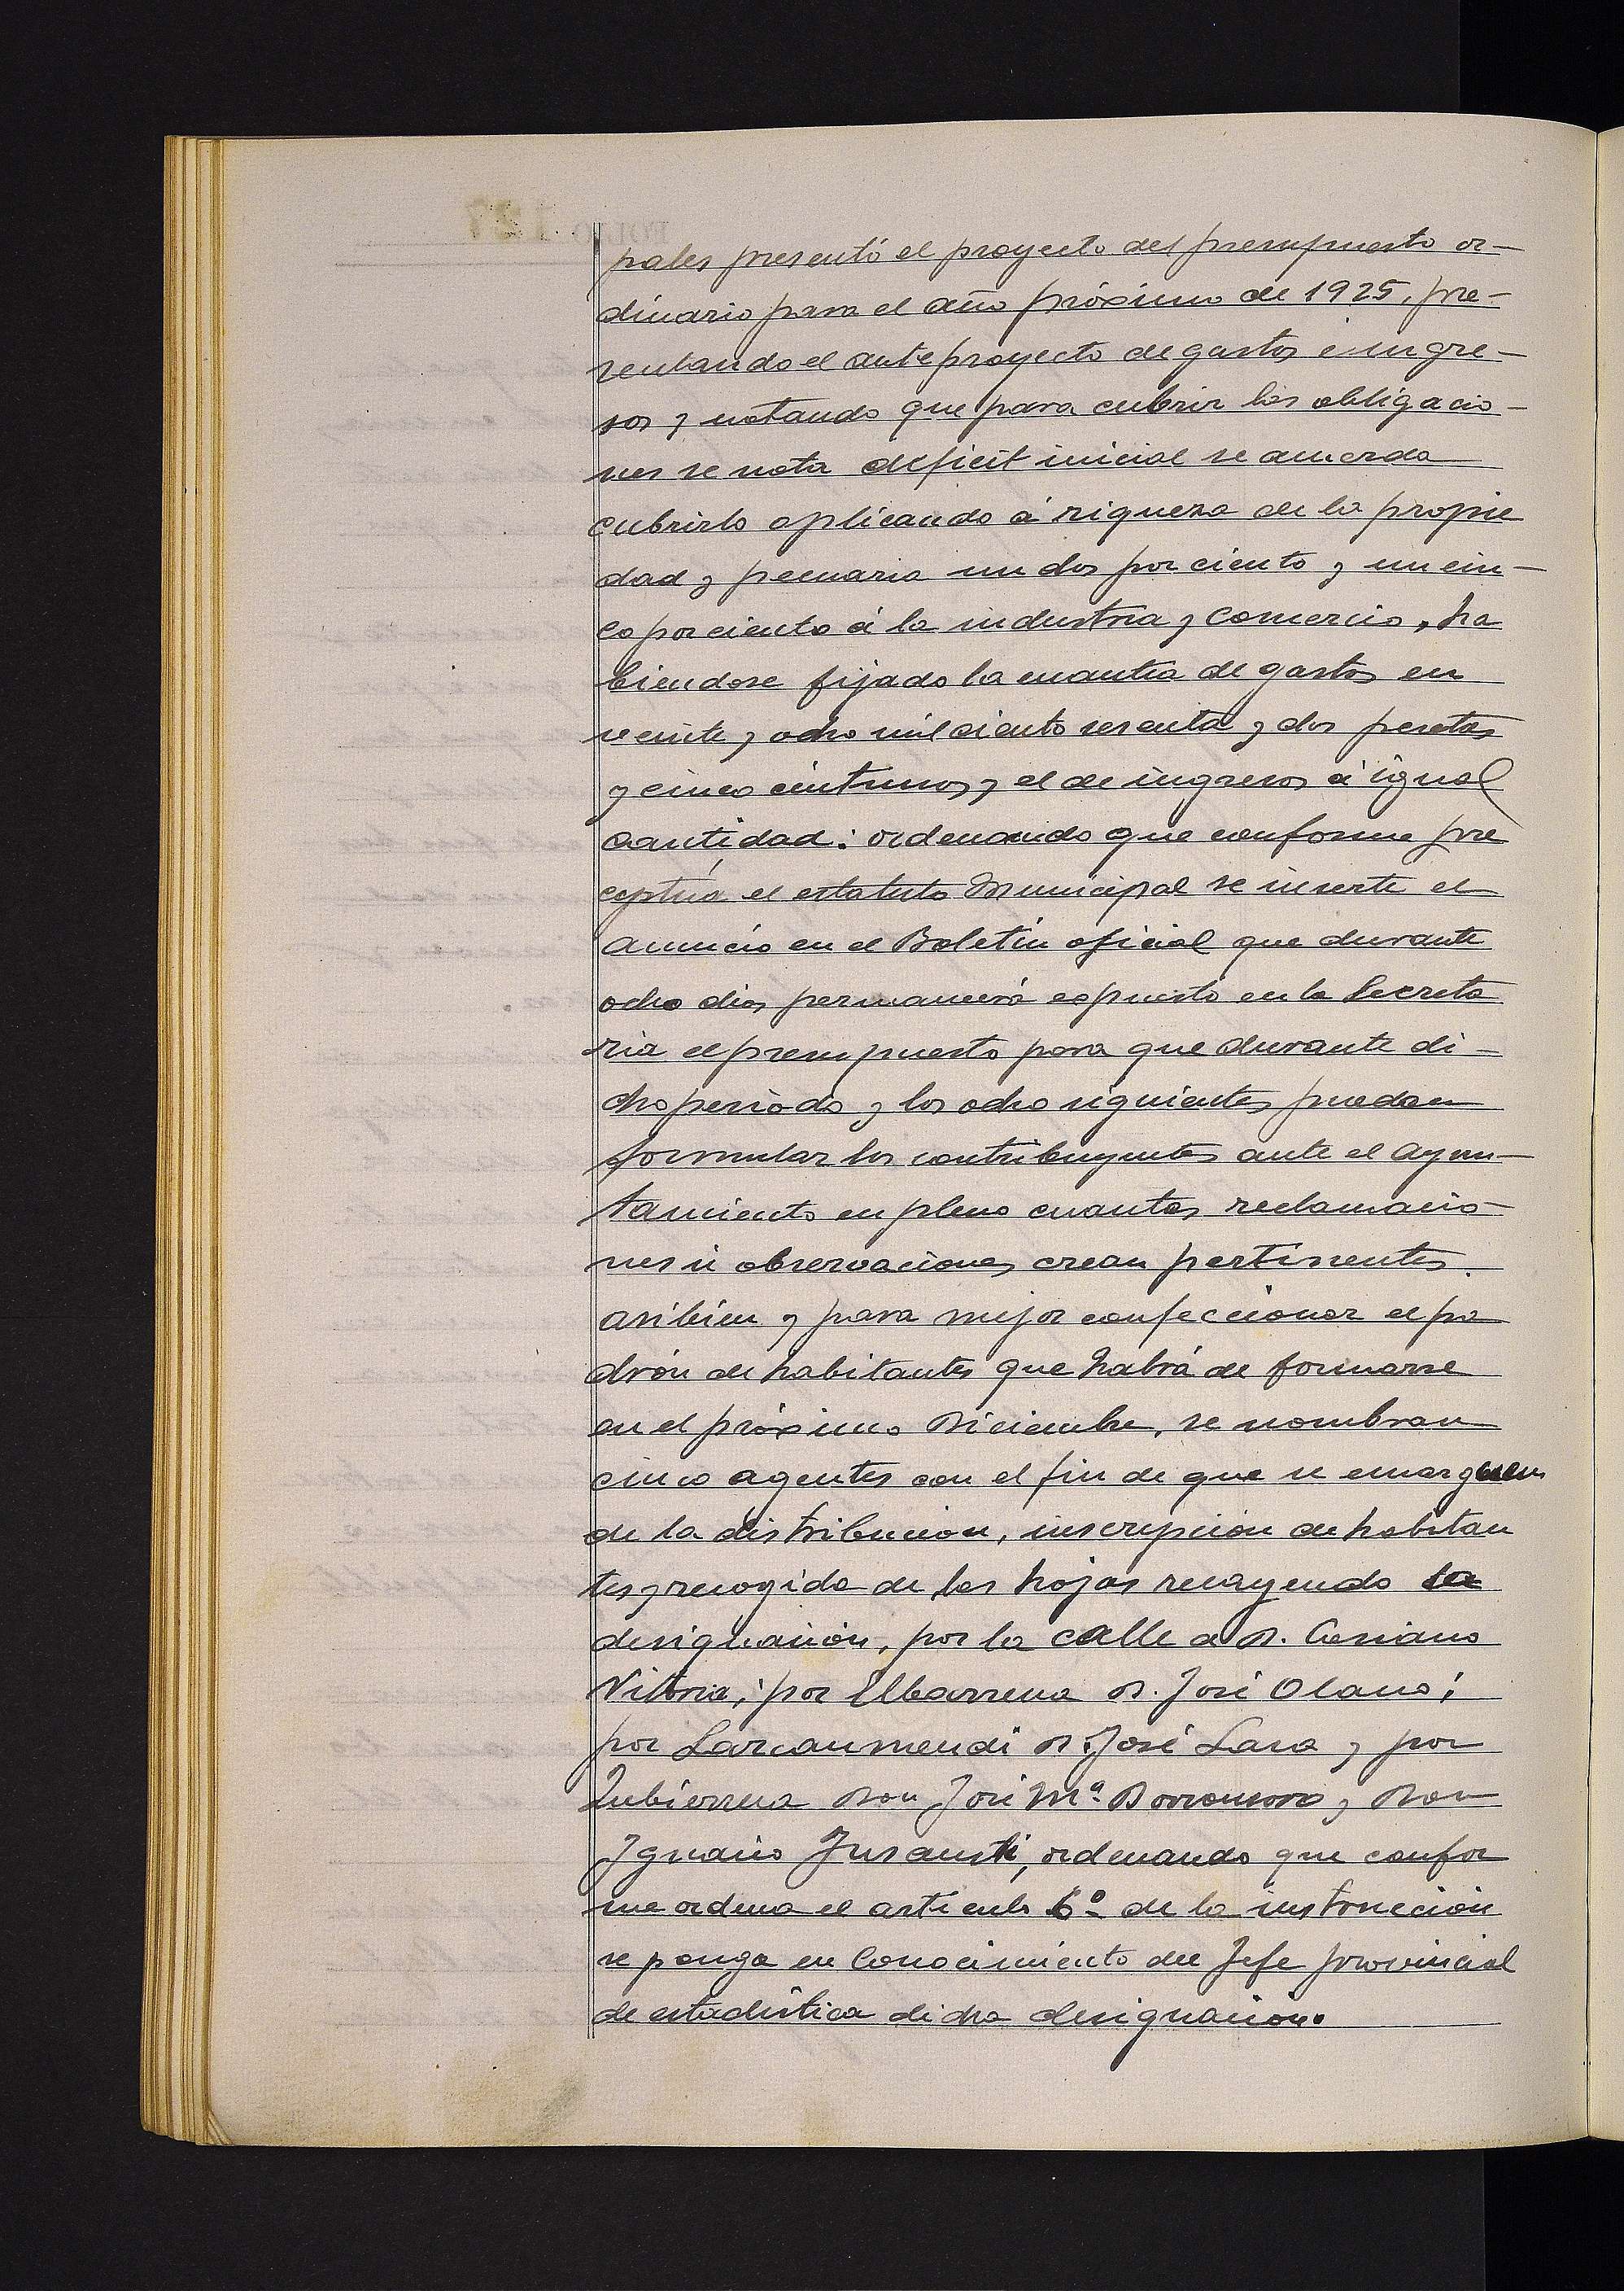 pales presentó el proyecto del presupuesto or-
dinario para el año próximo de 1925, pre-
sentando el ante proyecto de gastos é ingre-
sos y notando que para cubrir las obligacio-
nes se nota deficit inicial se acuerda
cubrirlo aplicando á riqueza de la propie
dad y pecuaria un dos por ciento y un cin-
co por ciento á la industria y comercio, ha
biendose fijado la cuantia de gastos en
veinte y ocho mil ciento sesenta y dos pesetas
y cinco céntimos y el de ingresos á igual
cantidad: ordenando que conforme pre
ceptúa el estatuto Municipal se inserte el
anuncio en el Boletín oficial que durante
ocho dias permanecerá expuesto en la Secreta
ria el presupuesto para que durante di-
cho periodo y los ocho siguientes puedan
formular los contribuyentes ante el Ayun-
tamiento en pleno cuantas reclamacio-
nes ú observaciones crean pertinentes.
asibien y para mejor confeccionar el pa
drón de habitantes que habrá de formarse
en el próximo Diciembre, se nombran
cinco agentes con el fin de que se encarguen
de la distribucion, inscripción de habitan
tes y recogida de las hojas recayendo la
designación, por la calle a D. Casiano
Vitoria; por Elbarrena D. José Olano;
por Larcanmendi D. José Lasa y por
Zubierrena Don José Mª. Dorronsoro y Don
Ignacio Jusausti, ordenando que confor
me ordena el articulo 6º de la instrucción
se ponga en conocimiento del Jefe provincial
de estadistica dicha designación.